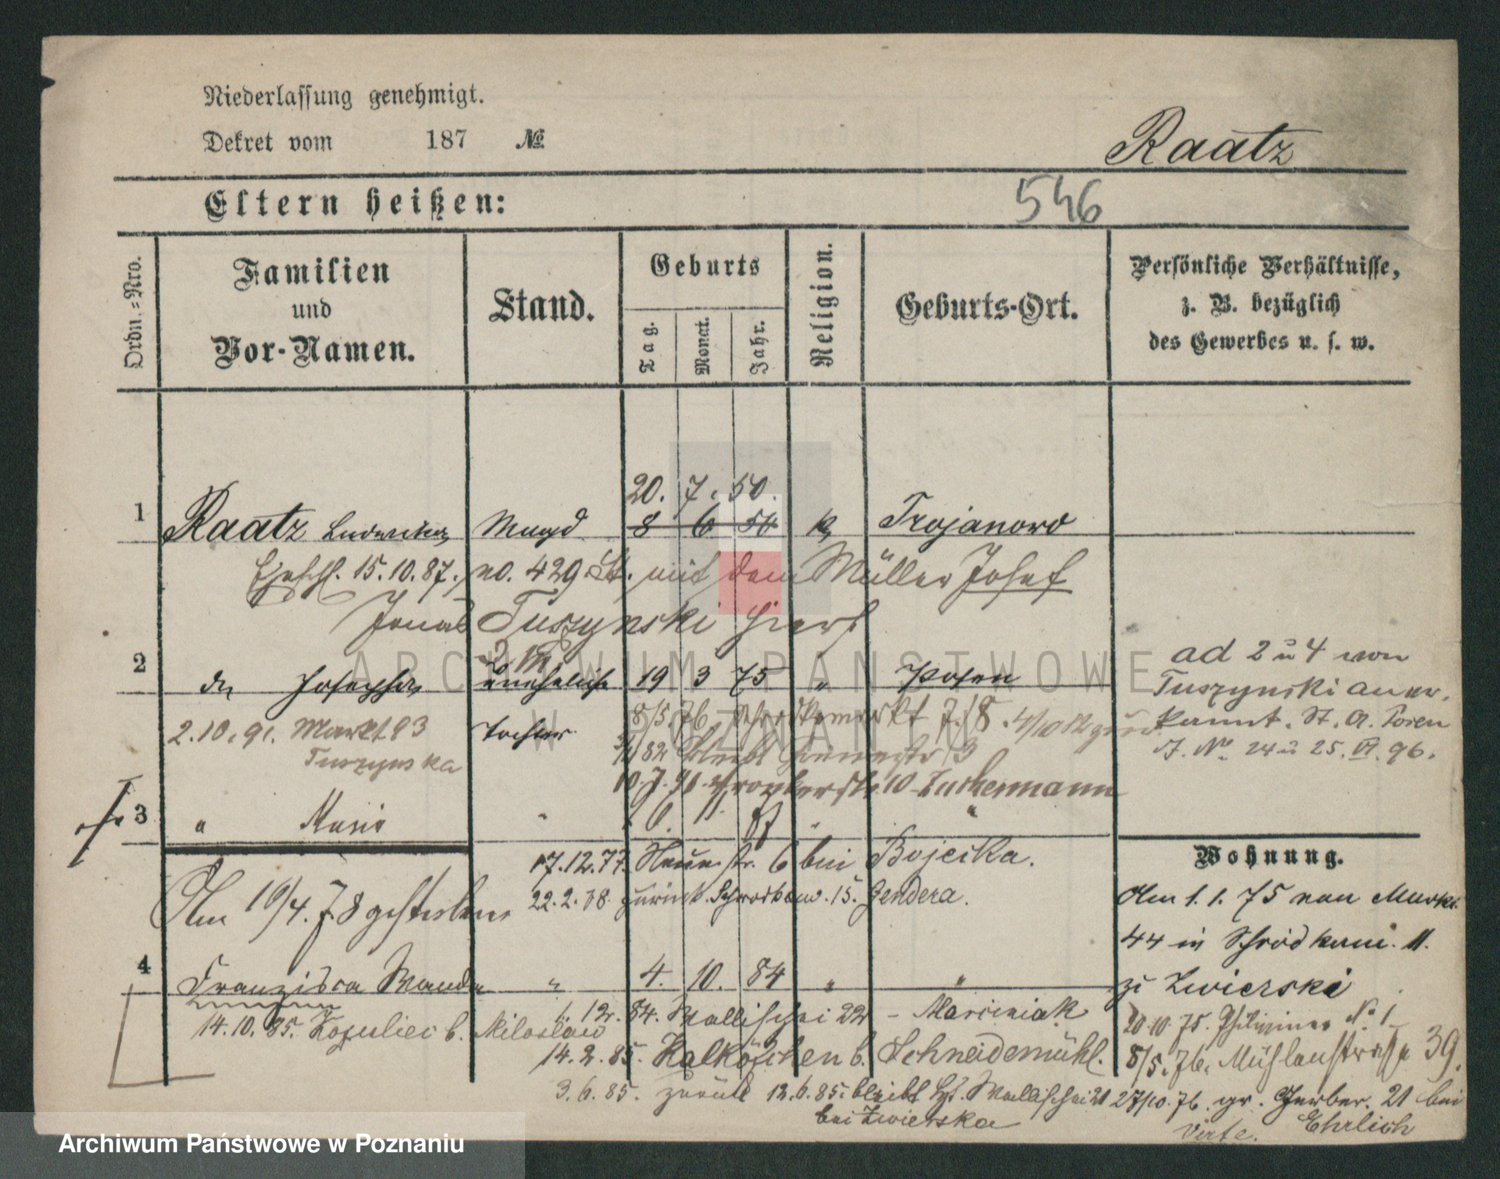 Niederlassung genehmigt.
Dekret vom 187 №
Raatz
Eltern heißen:
546
Ordn.-Nro.
Familien
und
Vor-Namen.
Stand.
Geburts
Tag.
Monat.
Jahr.
Religion.
Geburts-Ort.
Persönliche Verhältnisse,
z. B. bezüglich
des Gewerbes u. s. w.
20. 7. 50.
1 Raatz Ludwika Magd 8 6 50 k Trojanowo
Ehschl. 15.10.87. no. 429 St. mit dem Müller Josef
Tuszynski hier
2 Josepha uneheliche 19 3 75 " Posen
Tochter
ad 2 u 4 von
Tuszynski aner-
kannt. St. A. Posen
J. No 24 u 25. VI. 96.
2.10.91. Markt 83
Tuszynska
8/5 76
10.7.91 10 Zuckermann
3 " Marie " "
17.12.77. Neue str. 6 bei Bojecka.
Am 16/4.78 gestorben
22.2.78. zurück 15. Gendera.
Wohnung.
Am 1.1.75 von Markt
44 in Schrodkam. 11.
zu Zwierski
4 Franziska Wanda " 4. 10. 84 " "
1. 12. 84. Wallischei 22 - Marciniak
14.10.85. b. Miloslaw
14.2.85. b. Schneidemühl.
3.6.85. zurück 12.6.85. bleibt Wallischei 21
bei Zwierska
20.10.75. No 1
8/5.76. Mühlenstrasse 39.
27/10.76. gr. Gerber. 21 bei
Ehrlich
Verte.
ARCHIWUM PAŃSTWOWE
W POZNANIU
Archiwum Państwowe w Poznaniu